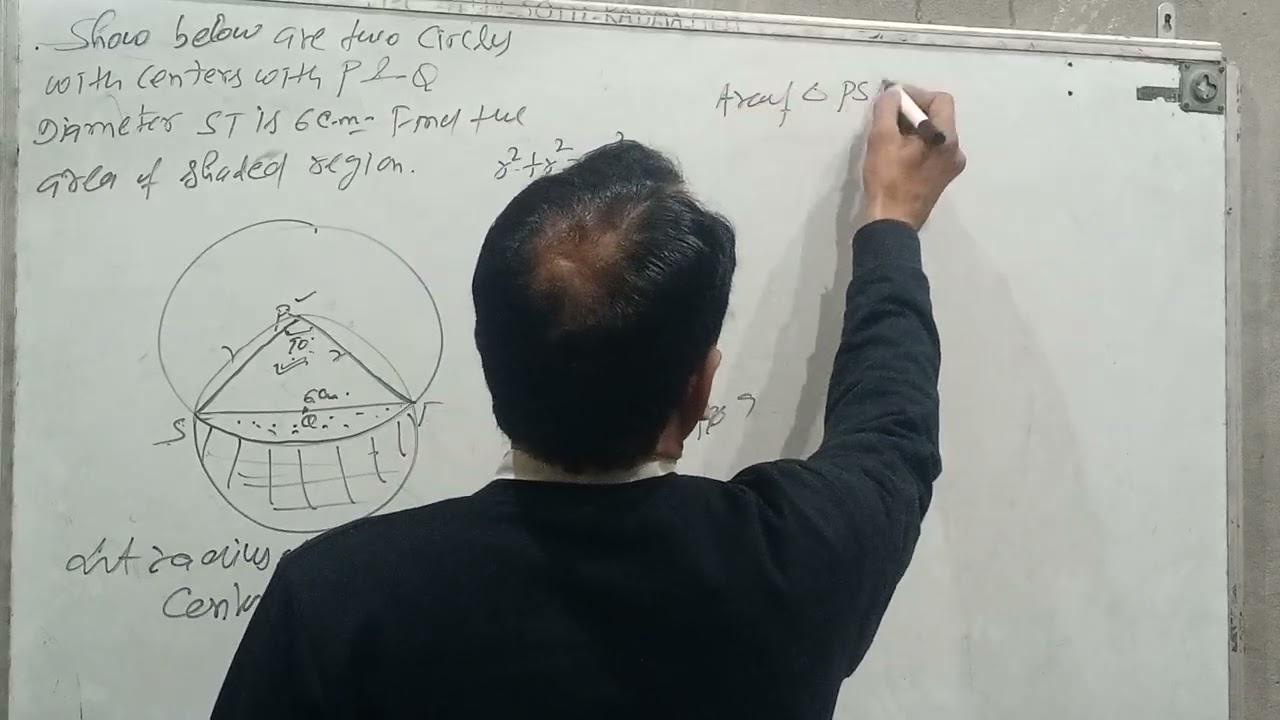 . Show below are two Circles
with centers with P & Q
Diameter ST is 6 cm. Find the
area of shaded region.
r² + r² = 2
Area of △ PS
P
90°
r
r
6 cm.
Q
S
T
Let radius
Cent